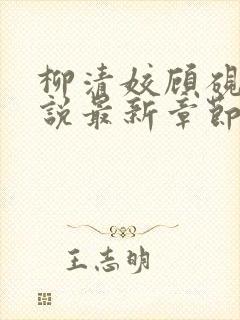 柳清姣顾砚
说最新章节
王志明